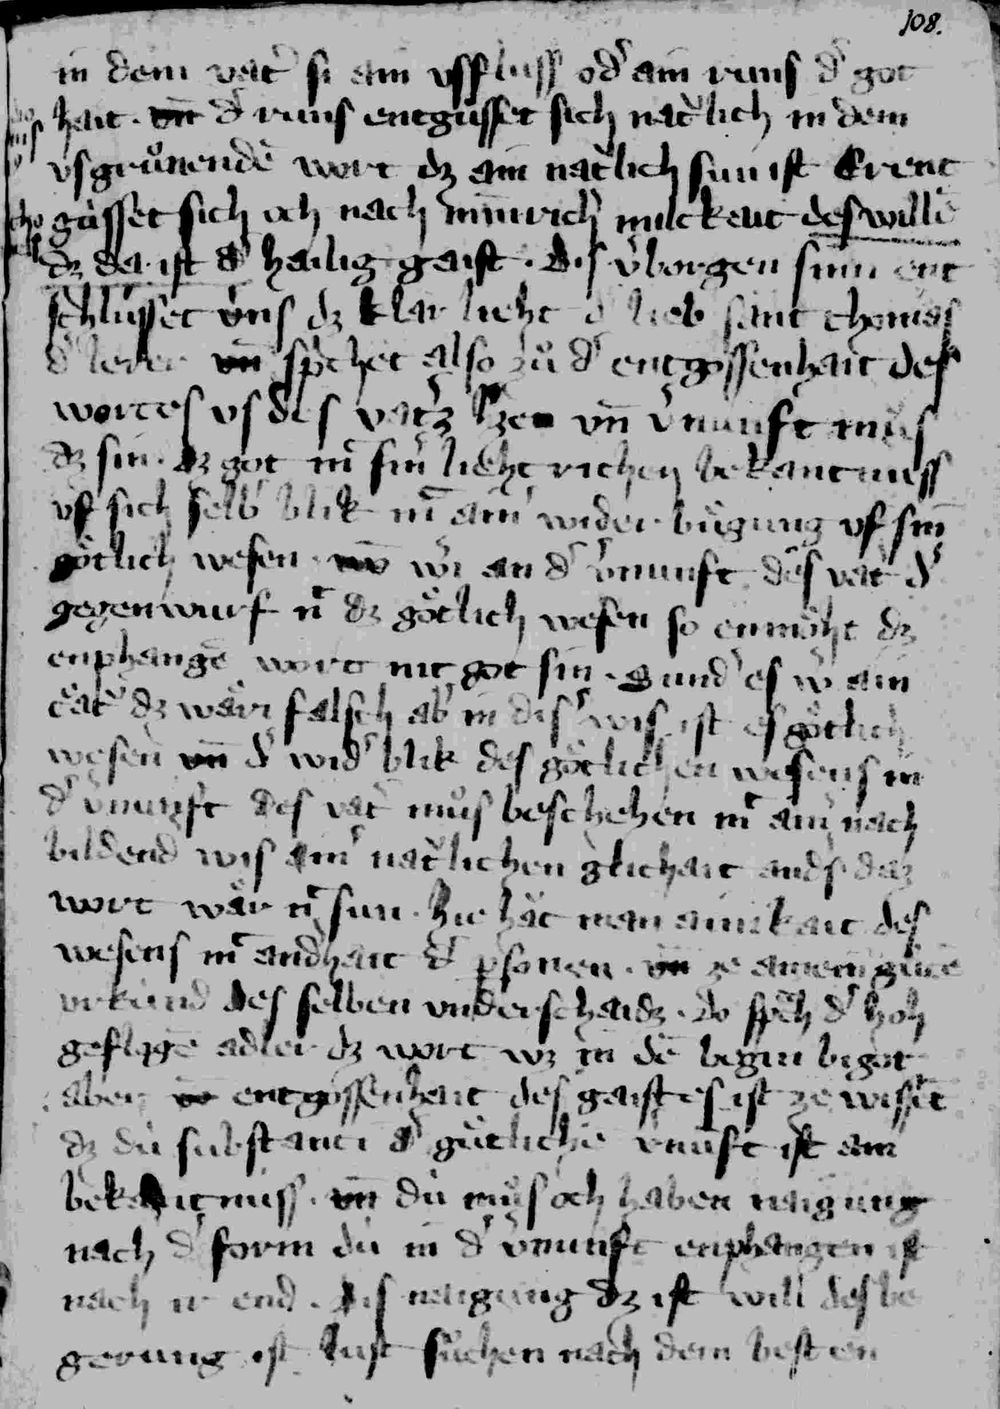 108.
in dem vatˀ si ain vssfluss odˀ ain runs dˀ got
hait . vn̄ dˀ runs entgusset sich natˀlich in dem
vsgrůnendē wort dz ain natˀlich sun ist Er ent
gusset sich och nach miñrichˀ milckait des willē
dz da ist dˀ hailig gaist . dis vˀborgen sinn ent
schlusset vns dz klar lieht dˀ lieb sant thomas
dˀ lerer vn̄ sp̄chet also zů dˀ entgossenhait des
wortes vs des vatˀz hˀzen vn̄ vˀnunft můs
dz sin . dz got mˀ sinˀ lieht richen bekantnuss
vf sich selbˀ blik mˀ ainˀ wider bögung vf sin
götlich wesen . wō wˀi an dˀ vˀnunft des vatˀ dˀ
gegenwurf nˀ dz götlich wesen so enmöht dz
enphangē wort nit got sin . Sundˀ es wˀ ain
c̊atˀ dz wäri falsch abˀ in disˀ wis ist es götlich
wesen vn̄ dˀ widˀ blik des götlichen wesens in
dˀ vˀnunft des vatˀ můs beschehen mˀ ainˀ nach
bildend wis ainˀ natˀlichen glichait andˀs daz
wort wär nˀ sun . hie hät man ainikait des
wesens mˀ andˀhait dˀ psonen . vn̄ ze ainem gůtē
vrkund des selben vnderschaidz . do sp̄ch dˀ hoh
geflogē adler dz wort wz in dē begin bi got
aber vō entgossenhait des gaistes ist ze wissēt
dz dü substanci dˀ götlichē vˀnūft ist ain
bekantnuss . vn̄ dü můs och haben naigung
nach dˀ form dü in dˀ vˀnunft enphangen ist
nach ir end . dis naigung dz ist will des be
gerung ist lust sůchen nach dem besten